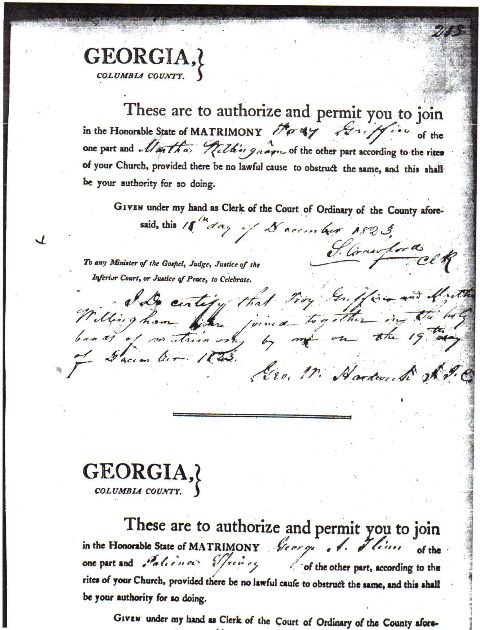 213
GEORGIA,}
COLUMBIA COUNTY.
These are to authorize and permit you to join
in the Honorable State of MATRIMONY Troy Griffin of the
one part and Martha Willingham of the other part according to the rites
of your Church, provided there be no lawful cause to obstruct the same, and this shall
be your authority for so doing.
GIVEN under my hand as Clerk of the Court of Ordinary of the County afore-
said, this 18th day of December 1823
S. Crawford
Clk
To any Minister of the Gospel, Judge, Justice of the
Inferior Court, or Justice of Peace, to Celebrate.
I Do certify that Troy Griffin and Martha
Willingham were joined together in the holy
bands of matrimony by me on the 19th day
of December 1823.
Geo. W. Hardwick J.I.C
GEORGIA,}
COLUMBIA COUNTY.
These are to authorize and permit you to join
in the Honorable State of MATRIMONY George A. Flinn of the
one part and Spivey of the other part, according to the
rites of your Church, provided there be no lawful cause to obstruct the same, and this shall
be your authority for so doing.
GIVEN under my hand as Clerk of the Court of Ordinary of the County afore-